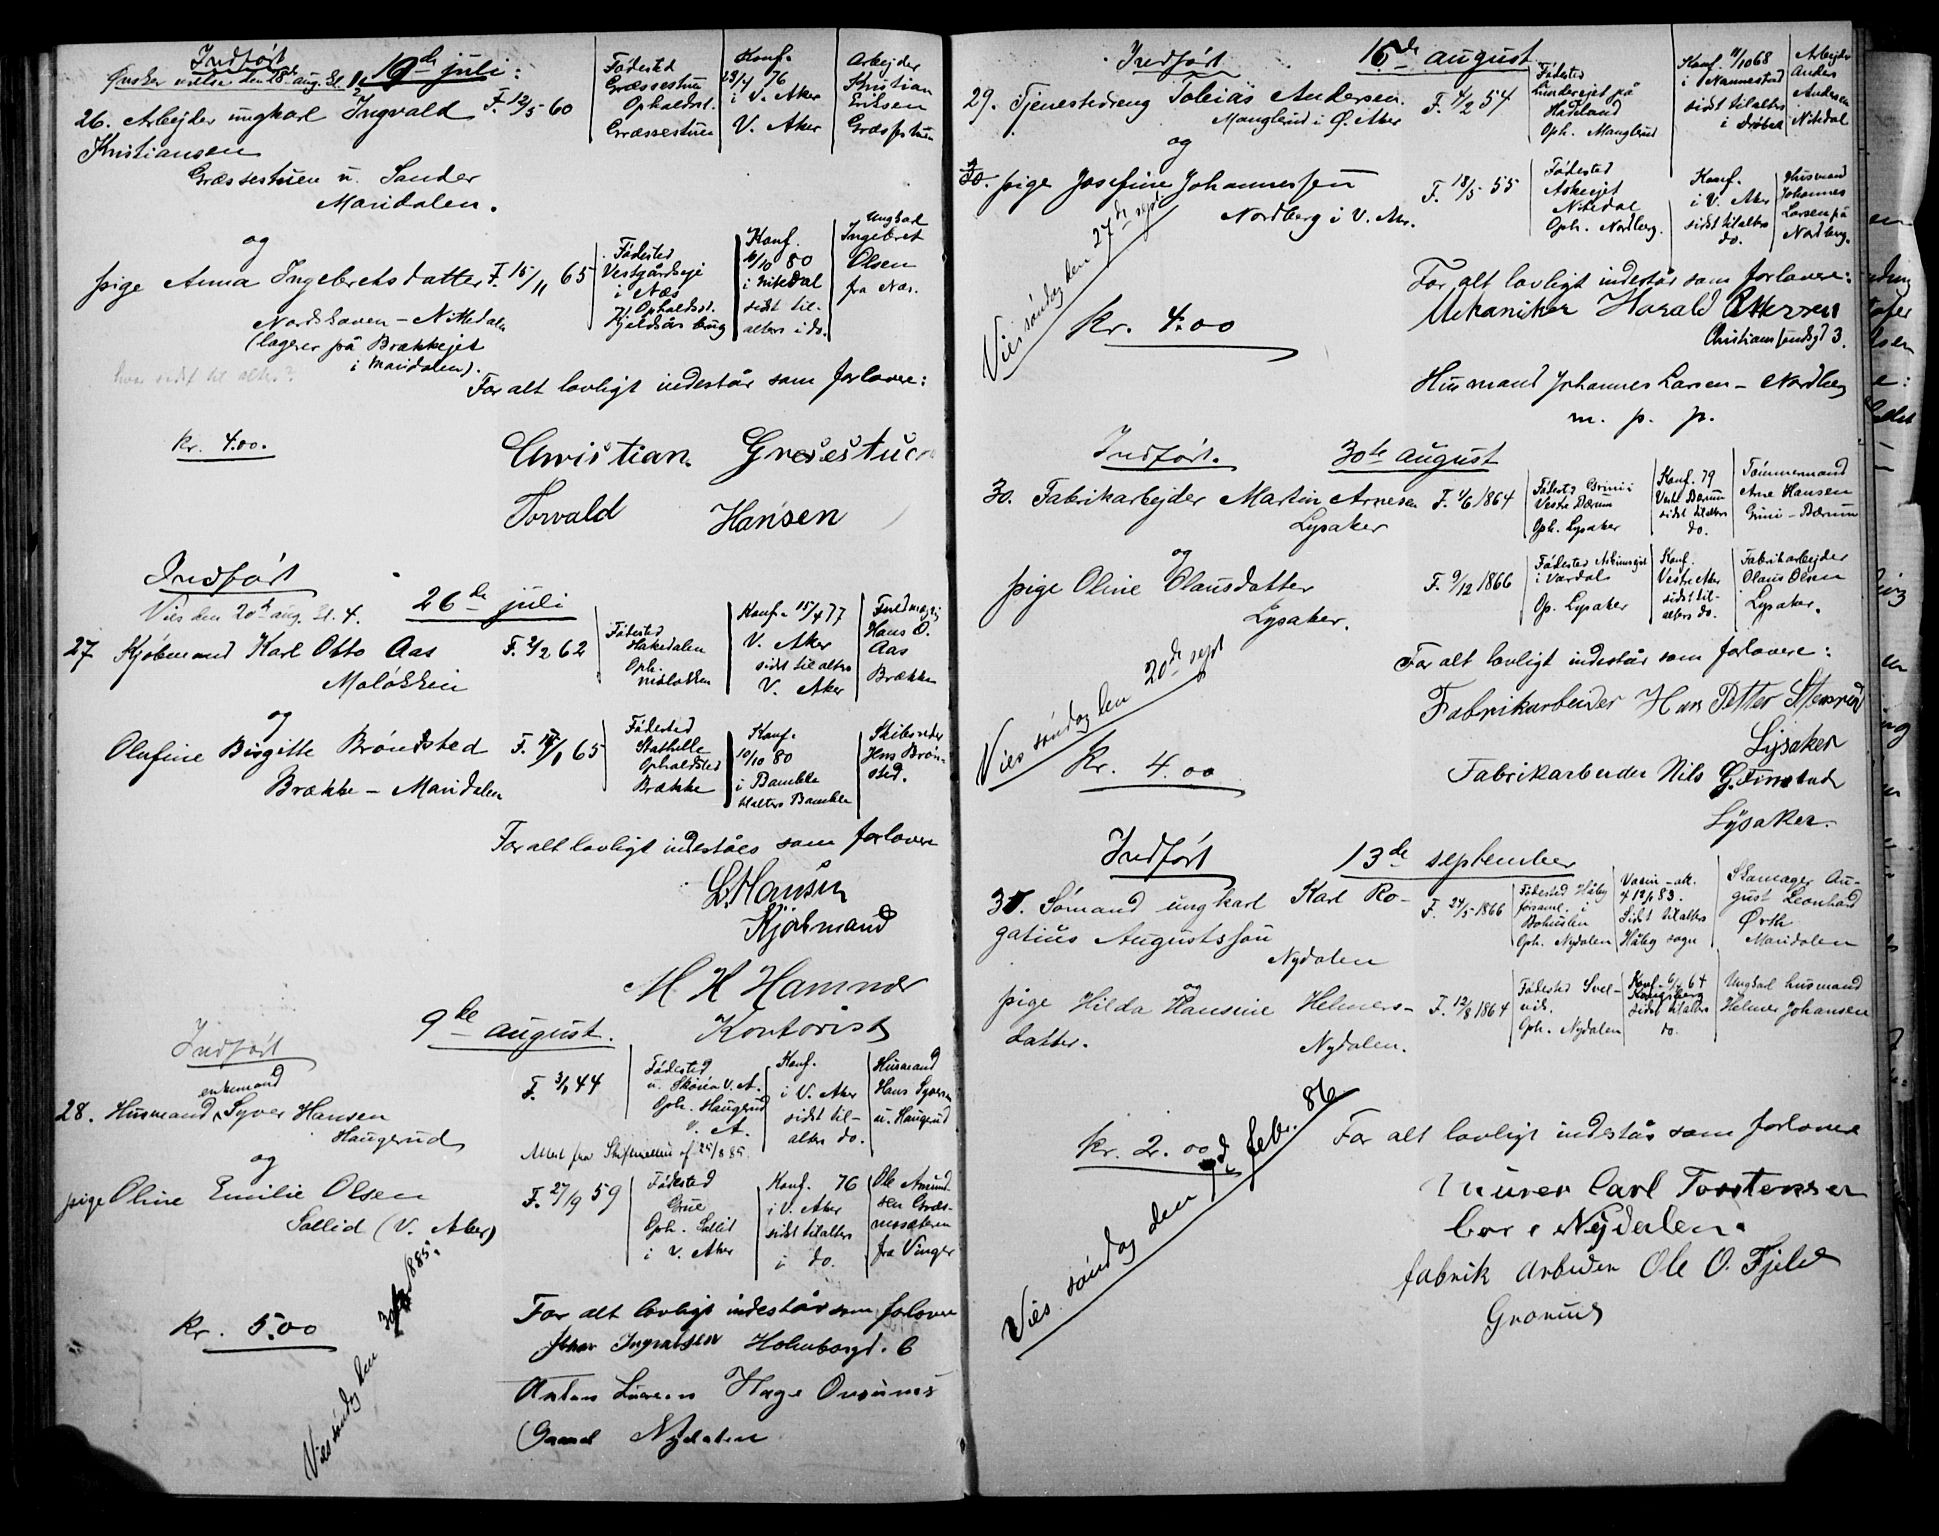 Indført
Ønsker vielse den 28de aug. kl. 19de juli:
26. Arbejder ungkarl Ingvald
Kristiansen
Græssestuen u. Sander
Maridalen.
F. 12/5 60
Fødested
Græssestuen
Opholdsst.
Græssestuen
Konf.
23/4 76
i V. Aker
V. Aker
Arbejder
Kristian
Eriksen
Græsstuen
og
pige Anna Ingebretsdatter F. 15/11 65
Nordskoven - Nittedalen
(lagerer på Brækkejet
i Maridalen).
hvor sidst til alters?
Fødested
Vestgårdseje
i Næs
Opholdsst.
Kjeldsås brug
Konf.
10/10 80
i Nitedal
sidst til-
alters i do.
Ungkarl
Ingebret
Olsen
fra Næs.
For alt lovligt indestår som forlovere:
kr. 4.00.
Christian Gresestuen
Torvald Hansen
Indført
Vies den 20de aug. kl. 4.
26de juli
27 Kjøbmand Karl Otto Aas
Moløkken
F. 2/2 62
Fødested
Hakedalen
Oph.
Moløkken
Konf. 15/4 77
V. Aker
sidst til alters
V. Aker
Fuldmægtig
Hans O.
Aas
Brække
og
Olufine Birgitte Brøndsted
Brække - Maridalen
F. 65
Fødested
Stathelle
Opholdsted
Brække
Konf.
10/10 80
i Bamble
til alters Bamble
Skibsreder
Hns Brøn-
sted.
For alt lovligt indeståes som forlovere
L. Hansen
Kjøbmand
M K Hamner
Kontorist
Indført
9de august.
enkemand
28. Husmand Syver Hansen
Haugerud
F. 3/1 44
Fødested
u. Skøien V. A.
Oph. Haugerud
V. A.
Konf.
i V. Aker
sidst til-
alters do.
Husmand
Hans Syversen
u. Haugerud
Attest fra Skifteretten af 25/8 85.
og
pige Oline Emilie Olsen
Sollid (V. Aker)
F. 27/9 59
Fødested
Grue
Oph. Sollid
i V. Aker
Konf. 76
i V. Aker
sidst til alters
i do.
Ole Amund-
sen Græs-
mosæteren
fra Vinger
kr. 5.00
Vies søndag den 30 1885.
For alt lovligt indestår som forlovere
Johan Ingvaldsen Holmborgd. 6
Anton
Nydalen
Indført 16de august
29. Tjenestedreng Tobias Andersen.
Manglerud i Ø. Aker
F. 4/2 54
Fødested
Lunderejet på
Hadeland
Oph. Manglerud
Konf. 11/10 68
i Nannestad
sidst til alters
i Drøbak
Arbejder
Anders
Andersen
Nitedal
og
pige Josefine Johannessen
Nordberg i V. Aker.
F. 18/5 55
Fødested
Askejet
Nitedal
Oph. Nordberg.
Konf.
i V. Aker
sidst til alters
do.
Husmand
Johannes
Larsen på
Nordberg.
Vies søndag den 27de sept
kr. 4.00
For alt lovligt indestår som forlovere:
Mekaniker Harald Pettersen
Christiansundsgd 3.
Husmand Johannes Larsen - Nordberg
m. p. p.
Indført. 30te august
30. Fabrikarbejder Martin Arnesen
Lysaker
F. 1/6 1864
Fødested Grini i
Vestre Bærum
Oph. Lysaker
Konf. 79
Vestre Bærum
sidst til alters
do.
Tømmermand
Arne Hansen
Grini - Bærum
og
pige Oline Olausdatter
Lysaker.
F. 9/12 1866
Fødested
i Vardal
Op. Lysaker
Konf.
Vestre Aker
sidst til-
alters do.
Fabrikarbejder
Olaus Olsen
Lysaker.
Vies søndag den 20de sept
kr. 4.00
For alt lovligt indestår som forlovere:
Fabrikarbeider Hans Petter Stensrød
Lysaker
Fabrikarbeider Nils G. Finstad
Lysaker.
Indført 13de september
31. Sømand ungkarl Karl Ro-
gatius Augustsson
Nydalen
F. 24/5 1866
Fødested Håby
forsaml. i
Bohuslen
Oph. Nydalen
Vacin-att.
4 12/6 83.
Sidst til alters
Håby sogn
Skomager Au-
gust Leonhard
Ørth
Maridalen
og
pige Hilda Hansine Helmers-
datter.
Nydalen.
F. 12/8 1864
Fødested Svel-
vik.
Oph. Nydalen
Kongsberg
sidst til alters
do.
Ungkarl husmand
Helmer Johansen
kr. 2.00
Vies søndag den 7de febr. 86
For alt lovligt indestår som forlovere
Murer Carl Torstensen
bor i Nydalen.
fabrik arbeider Ole O. Fjeld